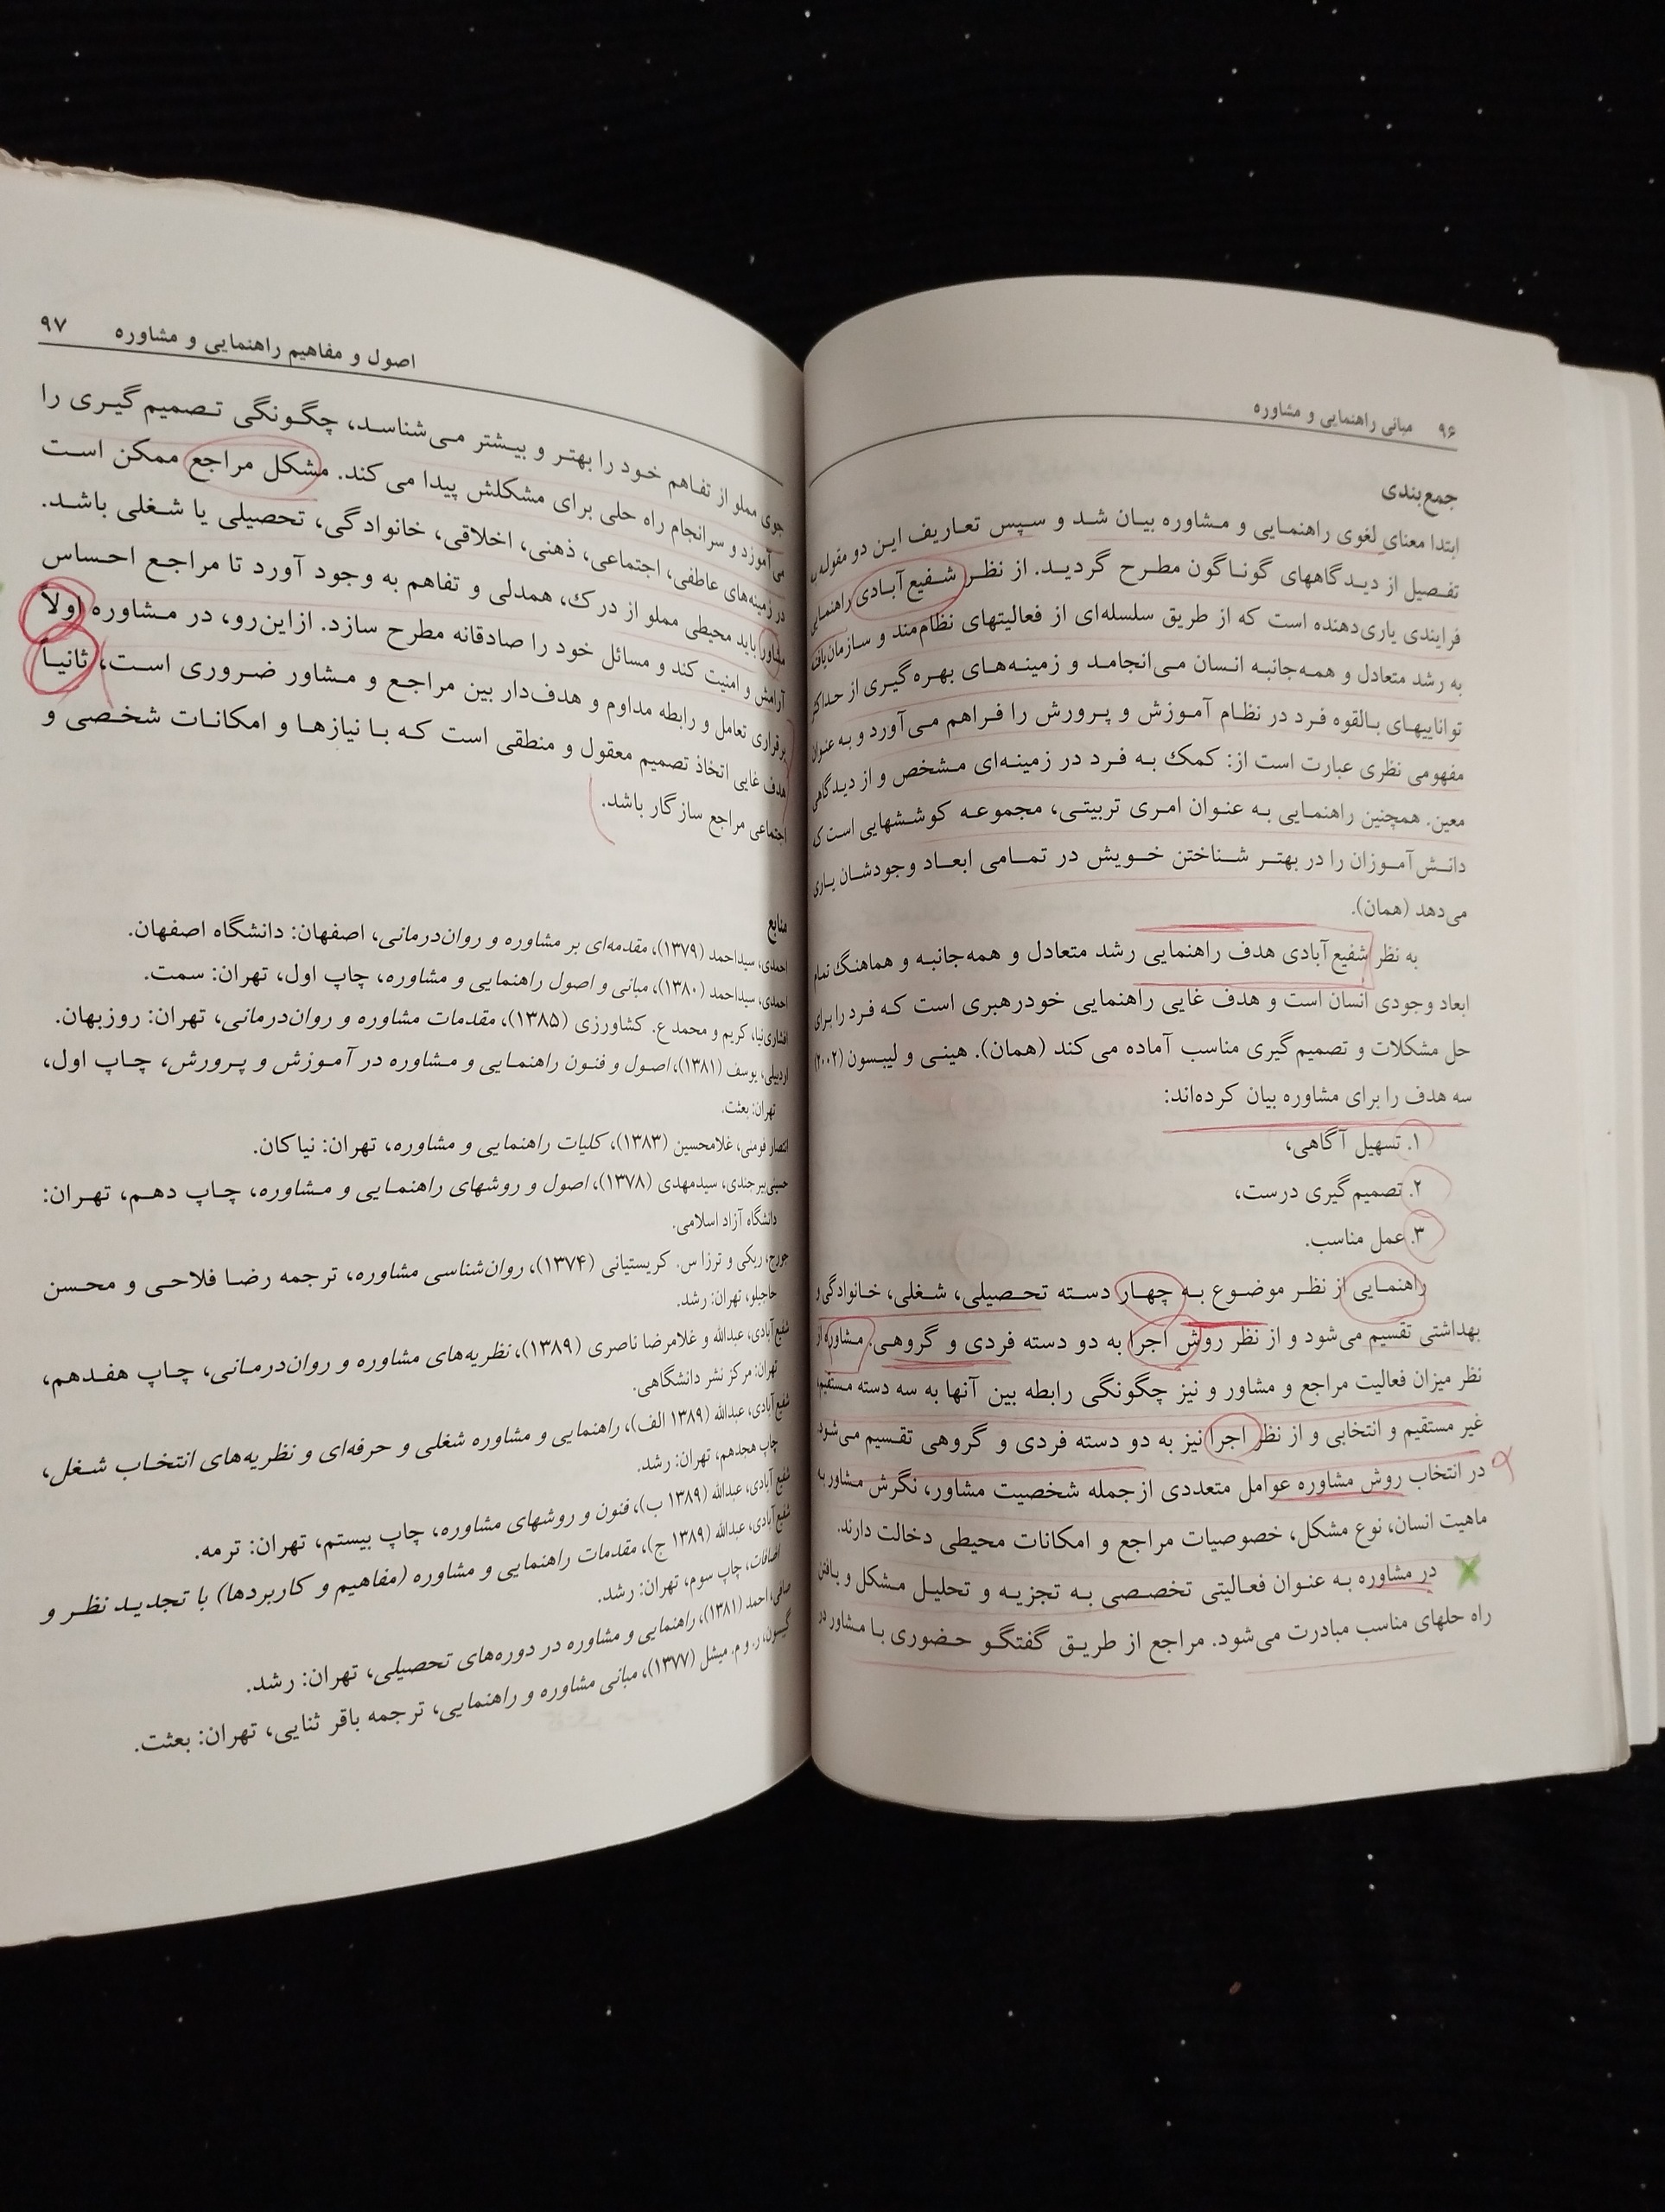 ۹۶ مبانی راهنمایی و مشاوره
جمع‌بندی
ابتدا معنای لغوی راهنمایی و مشاوره بیان شد و سپس تعاریف این دو مقوله به
تفصیل از دیدگاههای گوناگون مطرح گردید. از نظر شفیع‌آبادی راهنمایی
فرایندی یاری‌دهنده است که از طریق سلسله‌ای از فعالیتهای نظام‌مند و سازمان‌یافته
به رشد متعادل و همه‌جانبه انسان می‌انجامد و زمینه‌های بهره‌گیری از حداکثر
تواناییهای بالقوه فرد در نظام آموزش و پرورش را فراهم می‌آورد و به عنوان
مفهومی نظری عبارت است از: کمک به فرد در زمینه‌ای مشخص و از دیدگاهی
معین. همچنین راهنمایی به عنوان امری تربیتی، مجموعه کوششهایی است که
دانش‌آموزان را در بهتر شناختن خویش در تمامی ابعاد وجودشان یاری
می‌دهد (همان).
به نظر شفیع‌آبادی هدف راهنمایی رشد متعادل و همه‌جانبه و هماهنگ تمام
ابعاد وجودی انسان است و هدف غایی راهنمایی خودرهبری است که فرد را برای
حل مشکلات و تصمیم‌گیری مناسب آماده می‌کند (همان). هینی و لیبسون (۲۰۰۲)
سه هدف را برای مشاوره بیان کرده‌اند:
۱. تسهیل آگاهی،
۲. تصمیم‌گیری درست،
۳. عمل مناسب.
راهنمایی از نظر موضوع به چهار دسته تحصیلی، شغلی، خانوادگی و
بهداشتی تقسیم می‌شود و از نظر روش اجرا به دو دسته فردی و گروهی. مشاوره از
نظر میزان فعالیت مراجع و مشاور و نیز چگونگی رابطه بین آنها به سه دسته مستقیم،
غیر مستقیم و انتخابی و از نظر اجرا نیز به دو دسته فردی و گروهی تقسیم می‌شود.
در انتخاب روش مشاوره عوامل متعددی ازجمله شخصیت مشاور، نگرش مشاور به
ماهیت انسان، نوع مشکل، خصوصیات مراجع و امکانات محیطی دخالت دارند.
در مشاوره به عنوان فعالیتی تخصصی به تجزیه و تحلیل مشکل و یافتن
راه حلهای مناسب مبادرت می‌شود. مراجع از طریق گفتگو حضوری با مشاور در
اصول و مفاهیم راهنمایی و مشاوره ۹۷
جوی مملو از تفاهم خود را بهتر و بیشتر می‌شناسد، چگونگی تصمیم‌گیری را
می‌آموزد و سرانجام راه حلی برای مشکلش پیدا می‌کند. مشکل مراجع ممکن است
در زمینه‌های عاطفی، اجتماعی، ذهنی، اخلاقی، خانوادگی، تحصیلی یا شغلی باشد.
مشاور باید محیطی مملو از درک، همدلی و تفاهم به وجود آورد تا مراجع احساس
آرامش و امنیت کند و مسائل خود را صادقانه مطرح سازد. ازاین‌رو، در مشاوره اولاً
برقراری تعامل و رابطه مداوم و هدف‌دار بین مراجع و مشاور ضروری است، ثانیاً
هدف غایی اتخاذ تصمیم معقول و منطقی است که با نیازها و امکانات شخصی و
اجتماعی مراجع سازگار باشد.
منابع
احمدی، سیداحمد (۱۳۷۹)، مقدمه‌ای بر مشاوره و روان‌درمانی، اصفهان: دانشگاه اصفهان.
احمدی، سیداحمد (۱۳۸۰)، مبانی و اصول راهنمایی و مشاوره، چاپ اول، تهران: سمت.
افشاری‌نیا، کریم و محمد ع. کشاورزی (۱۳۸۵)، مقدمات مشاوره و روان‌درمانی، تهران: روزبهان.
اردبیلی، یوسف (۱۳۸۱)، اصول و فنون راهنمایی و مشاوره در آموزش و پرورش، چاپ اول،
تهران: بعثت.
انتصار فومنی، غلامحسین (۱۳۸۳)، کلیات راهنمایی و مشاوره، تهران: نیاکان.
حسینی بیرجندی، سیدمهدی (۱۳۷۸)، اصول و روشهای راهنمایی و مشاوره، چاپ دهم، تهران:
دانشگاه آزاد اسلامی.
جورج، ریکی و ترزا س. کریستیانی (۱۳۷۴)، روان‌شناسی مشاوره، ترجمه رضا فلاحی و محسن
حاجیلو، تهران: رشد.
شفیع‌آبادی، عبدالله و غلامرضا ناصری (۱۳۸۹)، نظریه‌های مشاوره و روان‌درمانی، چاپ هفدهم،
تهران: مرکز نشر دانشگاهی.
شفیع‌آبادی، عبدالله (۱۳۸۹ الف)، راهنمایی و مشاوره شغلی و حرفه‌ای و نظریه‌های انتخاب شغل،
چاپ هجدهم، تهران: رشد.
شفیع‌آبادی، عبدالله (۱۳۸۹ ب)، فنون و روشهای مشاوره، چاپ بیستم، تهران: ترمه.
شفیع‌آبادی، عبدالله (۱۳۸۹ ج)، مقدمات راهنمایی و مشاوره (مفاهیم و کاربردها) با تجدید نظر و
اضافات، چاپ سوم، تهران: رشد.
صافی، احمد (۱۳۸۱)، راهنمایی و مشاوره در دوره‌های تحصیلی، تهران: رشد.
گیبسون، ر. و م. میشل (۱۳۷۷)، مبانی مشاوره و راهنمایی، ترجمه باقر ثنایی، تهران: بعثت.